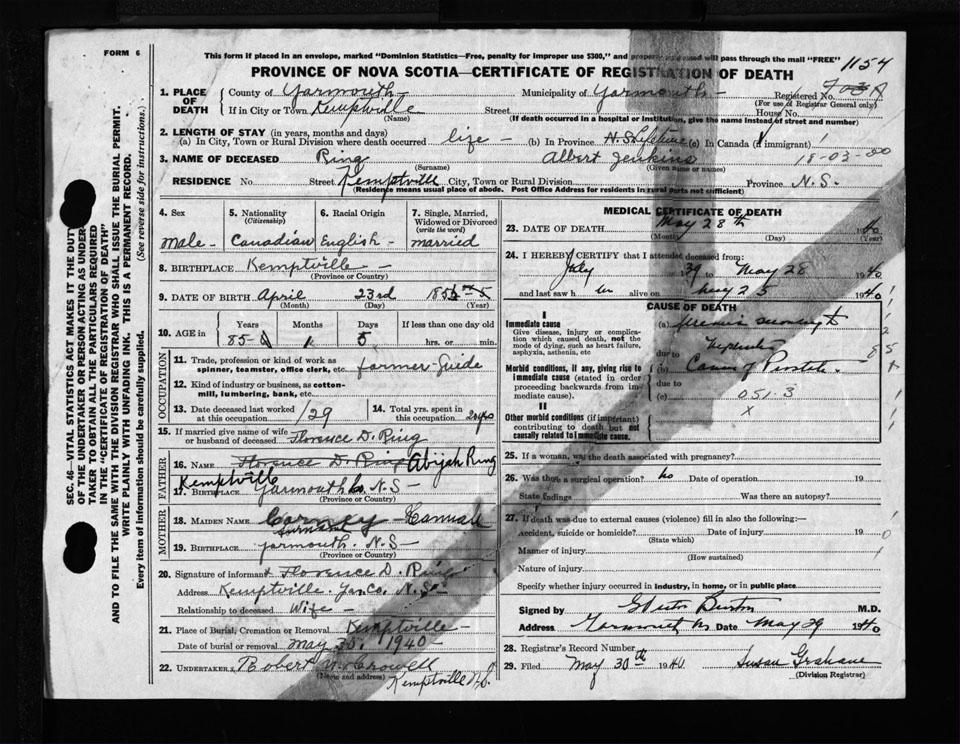 FORM 6
This form if placed in an envelope, marked "Dominion Statistics—Free, penalty for improper use $300," and will pass through the mail "FREE"
1154
PROVINCE OF NOVA SCOTIA—CERTIFICATE OF REGISTRATION OF DEATH
SEC. 46—VITAL STATISTICS ACT MAKES IT THE DUTY
OF THE UNDERTAKER OR PERSON ACTING AS UNDER-
TAKER TO OBTAIN ALL THE PARTICULARS REQUIRED
IN THE "CERTIFICATE OF REGISTRATION OF DEATH"
AND TO FILE THE SAME WITH THE DIVISION REGISTRAR WHO SHALL ISSUE THE BURIAL PERMIT.
WRITE PLAINLY WITH UNFADING INK. THIS IS A PERMANENT RECORD.
Every item of information should be carefully supplied. (See reverse side for instructions.)
1. PLACE OF DEATH County of Yarmouth Municipality of Yarmouth Registered No.
(For use of Registrar General only)
If in City or Town Kemptville Street House No.
(Name) (If death occurred in a hospital or institution, give the name instead of street and number)
2. LENGTH OF STAY (in years, months and days)
(a) In City, Town or Rural Division where death occurred life (b) In Province N.S. Lifetime (c) In Canada (if immigrant)
3. NAME OF DECEASED Ring Albert Jenkins 18-03-00
(Surname) (Given name or names)
RESIDENCE No. Street Kemptville City, Town or Rural Division Province N.S.
(Residence means usual place of abode. Post Office Address for residents in rural parts not sufficient)
4. Sex
Male
5. Nationality
(Citizenship)
Canadian
6. Racial Origin
English
7. Single, Married,
Widowed or Divorced
(write the word)
married
8. BIRTHPLACE Kemptville
(Province or County)
9. DATE OF BIRTH April 23rd 185
(Month) (Day) (Year)
10. AGE in Years Months Days If less than one day
85 1 5 hrs. or min.
OCCUPATION
11. Trade, profession or kind of work as
spinner, teamster, office clerk, etc. farmer Guide
12. Kind of industry or business, as cotton-
mill, lumbering, bank, etc.
13. Date deceased last worked
at this occupation 1/29
14. Total yrs. spent in
this occupation
15. If married give name of wife
or husband of deceased Florence D. Ring
FATHER
16. NAME Florence D. Ring Abijah Ring
Kemptville
17. BIRTHPLACE Yarmouth Co. N.S.
(Province or County)
MOTHER
18. MAIDEN NAME
Surname
19. BIRTHPLACE yarmouth. N.S.
(Province or County)
20. Signature of informant Florence D. Ring
Address Kemptville. Yar. Co. N.S.
Relationship to deceased Wife
21. Place of Burial, Cremation or Removal Kemptville
Date of burial or removal May 30. 1940
22. UNDERTAKER Robert N. Crowell
(Name and address) Kemptville N.S.
MEDICAL CERTIFICATE OF DEATH
23. DATE OF DEATH May 28th 1940
(Month) (Day) (Year)
24. I HEREBY CERTIFY that I attended deceased from:
July 1939 to May 28 1940
and last saw h im alive on May 25 1940
CAUSE OF DEATH
I
Immediate cause
Give disease, injury or complica-
tion which caused death, not the
mode of dying, such as heart failure,
asphyxia, asthenia, etc
(a)
due to
Morbid conditions, if any, giving rise to
immediate cause (stated in order
proceeding backwards from im-
mediate cause).
(b) Cancer of Prostate
due to
(c) 051.3
X
II
Other morbid conditions (if important)
contributing to death but not
causally related to immediate cause.
25. If a woman, was the death associated with pregnancy?
26. Was there a surgical operation? no Date of operation 19
State findings Was there an autopsy?
27. If death was due to external causes (violence) fill in also the following:—
Accident, suicide or homicide? Date of injury 19
(State which)
Manner of injury
(How sustained)
Nature of injury
Specify whether injury occurred in industry, in home, or in public place
Signed by Burton M.D.
Address Yarmouth Date May 29 1940
28. Registrar's Record Number
29. Filed May 30th 1940 Susan Grahame
(Division Registrar)